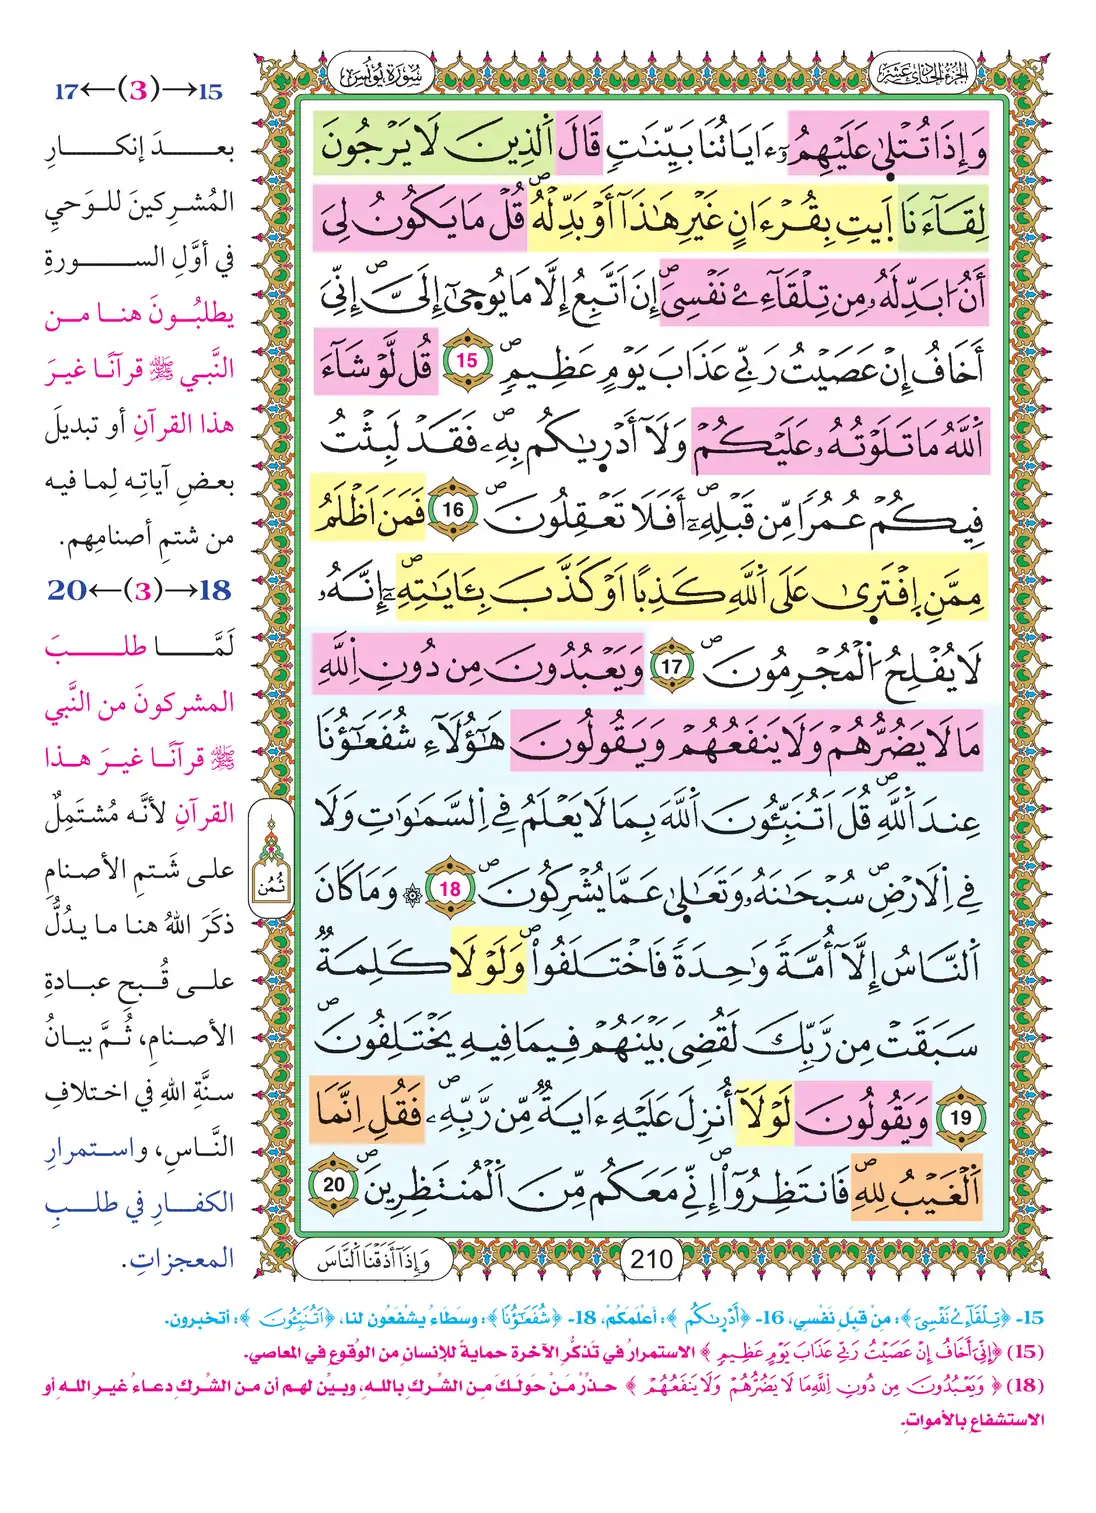 سُورَةُ يُونُسَ
الجزء الحادي عشر
وَإِذَا تُتْلَىٰ عَلَيْهِمُۥٓ ءَايَاتُنَا بَيِّنَٰتٖ قَالَ اَ۬لذِينَ لَا يَرْجُونَ
لِقَآءَنَا اَ۪يتِ بِقُرْءَانٍ غَيْرِ هَٰذَآ أَوْ بَدِّلْهُ قُلْ مَا يَكُونُ لِيَ
أَنُ ا۟بَدِّلَهُۥ مِن تِلْقَآءِےْ نَفْسِيَ إِنَ اَتَّبِعُ إِلَّا مَا يُوحَىٰٓ إِلَيَّ إِنِّيَ
أَخَافُ إِنْ عَصَيْتُ رَبِّے عَذَابَ يَوْمٍ عَظِيمٖ 15 قُل لَّوْ شَآءَ
اَ۬للَّهُ مَا تَلَوْتُهُۥ عَلَيْكُمْ وَلَآ أَدْرٜىٰكُم بِهِۦ فَقَدْ لَبِثْتُ
فِيكُمْ عُمُراٗ مِّن قَبْلِهِۦٓ أَفَلَا تَعْقِلُونَ 16 فَمَنَ اَظْلَمُ
مِمَّنِ اِ۪فْتَر۪ىٰ عَلَى اَ۬للَّهِ كَذِباً اَوْ كَذَّبَ بِـَٔايَٰتِهِۦٓ إِنَّهُۥ
لَا يُفْلِحُ اُ۬لْمُجْرِمُونَ 17 وَيَعْبُدُونَ مِن دُونِ اِ۬للَّهِ
مَا لَا يَضُرُّهُمْ وَلَا يَنفَعُهُمْ وَيَقُولُونَ هَٰٓؤُلَآءِ شُفَعَٰٓؤُنَا
عِندَ اَ۬للَّهِ قُلَ اَتُنَبِّـُٔونَ اَ۬للَّهَ بِمَا لَا يَعْلَمُ فِے اِ۬لسَّمَٰوَٰتِ وَلَا
فِے اِ۬لَارْضِ سُبْحَٰنَهُۥ وَتَعَٰلَىٰ عَمَّا يُشْرِكُونَ 18 ۞ وَمَا كَانَ
اَ۬لنَّاسُ إِلَّآ أُمَّةٗ وَٰحِدَةٗ فَاخْتَلَفُواْ وَلَوْلَا كَلِمَةٞ
سَبَقَتْ مِن رَّبِّكَ لَقُضِيَ بَيْنَهُمْ فِيمَا فِيهِ يَخْتَلِفُونَ
19 وَيَقُولُونَ لَوْلَآ أُنزِلَ عَلَيْهِ ءَايَةٞ مِّن رَّبِّهِۦ فَقُلِ اِنَّمَا
اَ۬لْغَيْبُ لِلهِ فَانتَظِرُوٓاْ إِنِّے مَعَكُم مِّنَ اَ۬لْمُنتَظِرِينَ 20
ثُمُن
210
وَإِذَآ أَذَقْنَا اَ۬لنَّاسَ
15→(3)←17
بعدَ إنكارِ
المُشركينَ للوَحيِ
في أوَّلِ السورةِ
يطلبُونَ هنا من
النَّبي ﷺ قرآنًا غيرَ
هذا القرآنِ أو تبديلَ
بعضِ آياتِه لِما فيه
من شتمِ أصنامِهم.
18→(3)←20
لَمَّا طلبَ
المشركونَ من النَّبي
ﷺ قرآنًا غيرَ هذا
القرآنِ لأنَّه مُشتَمِلٌ
على شَتمِ الأصنامِ
ذكَرَ اللهُ هنا ما يدُلُّ
على قُبحِ عبادةِ
الأصنامِ، ثُمَّ بيانُ
سنَّةِ اللهِ في اختلافِ
النَّاسِ، واستمرارِ
الكفارِ في طلبِ
المعجزاتِ.
15- ﴿تِلْقَآءِےْ نَفْسِيَ﴾: مِنْ قِبَلِ نَفْسِي، 16- ﴿أَدْرٜىٰكُم﴾: أَعْلَمَكُمْ، 18- ﴿شُفَعَٰٓؤُنَا﴾: وسَطَاءُ يشْفَعُون لنا، ﴿اَتُنَبِّـُٔونَ﴾: أتخبرون.
(15) ﴿إِنِّيَ أَخَافُ إِنْ عَصَيْتُ رَبِّے عَذَابَ يَوْمٍ عَظِيمٖ﴾ الاستمرارُ في تذكُّرِ الآخرةِ حمايةٌ للإنسانِ من الوُقوعِ في المعاصي.
(18) ﴿وَيَعْبُدُونَ مِن دُونِ اِ۬للَّهِ مَا لَا يَضُرُّهُمْ وَلَا يَنفَعُهُمْ﴾ حذِّرْ مَنْ حَولَكَ مِنَ الشِّركِ باللهِ، وبيِّن لهم أن من الشِّركِ دعاءُ غيرِ اللهِ أو
الاستشفاعِ بالأمواتِ.